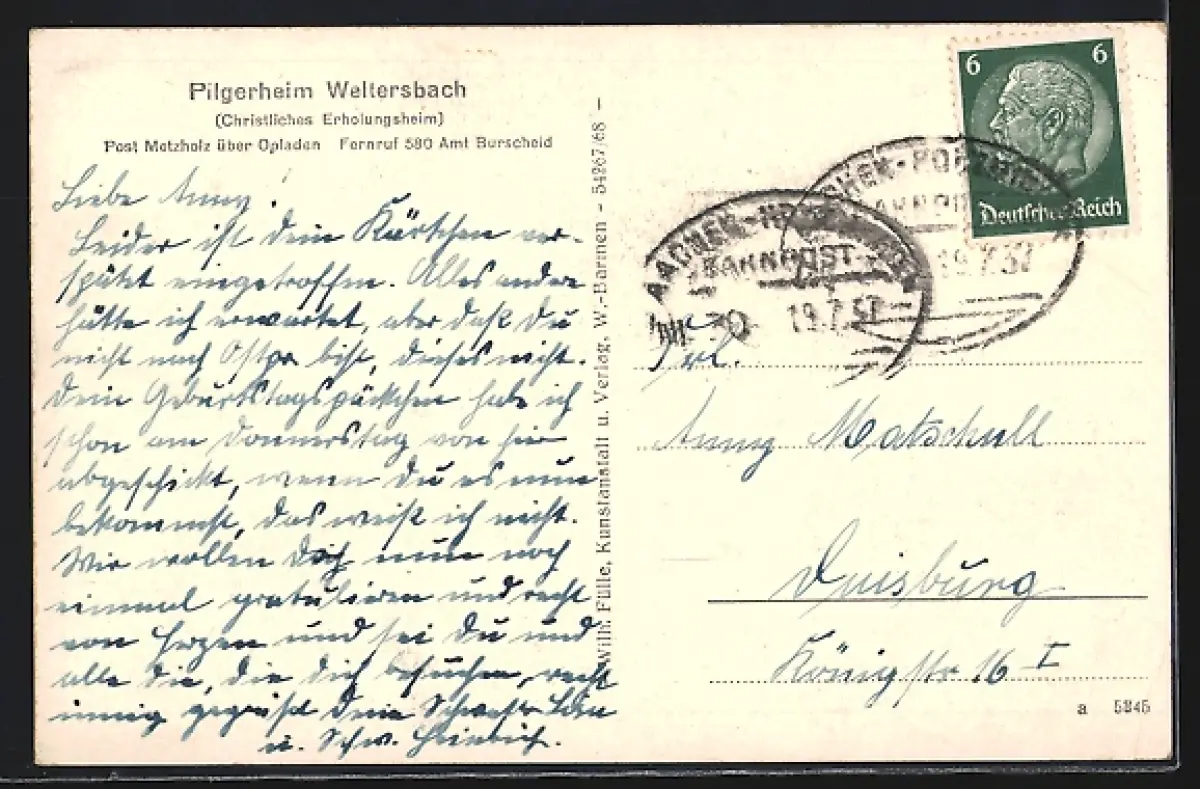 Pilgerheim Weltersbach
(Christliches Erholungsheim)
Post Metzholz über Opladen Fernruf 580 Amt Burscheid
Liebe Anny!
Leider ist dein Kärtchen ver-
spätet eingetroffen. Alles andere
hätte ich erwartet, aber daß du
nicht nach bist, dieses nicht.
Dein Geburtstagspäckchen habe ich
schon am Donnerstag von hier
abgeschickt, wenn du es nun
bekommst, das weiß ich nicht.
Wir wollen Dich nun noch
einmal gratulieren und recht
von Herzen und sei du und
alle die, die dich besuchen, recht
innig gegrüßt Deine Schwester
u. Schw. Heinrich.
Wilh. Fülle, Kunstanstalt u. Verlag, W.-Barmen - 54267/68 -
6 6
Deutsches Reich
BAHNPOST
19.7.37
AACHEN-
BAHNPOST
19.7.37
Frl.
Anny Matschull
Duisburg
Königstr 16 I
a 5245